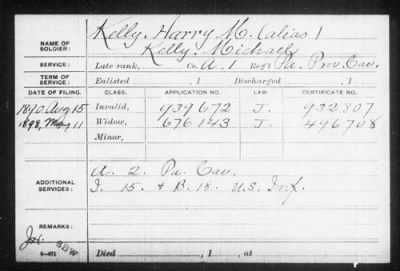 Kelly, Harry M. (alias)
NAME OF SOLDIER: Kelly, Michael
SERVICE: Late rank, Co. A. 1 Reg't Pa. Prov. Cav.
TERM OF SERVICE: Enlisted , 1 Discharged , 1
DATE OF FILING. CLASS. APPLICATION NO. LAW. CERTIFICATE NO.
1890 Aug 15 Invalid, 939672 J. 932807
1898, 11 Widow, 676143 J. 496708
Minor,
ADDITIONAL SERVICES: A. 2. Pa. Cav.
I. 15. & B. 18. U.S. Inf.
REMARKS:
SBW
Died , 1 , at